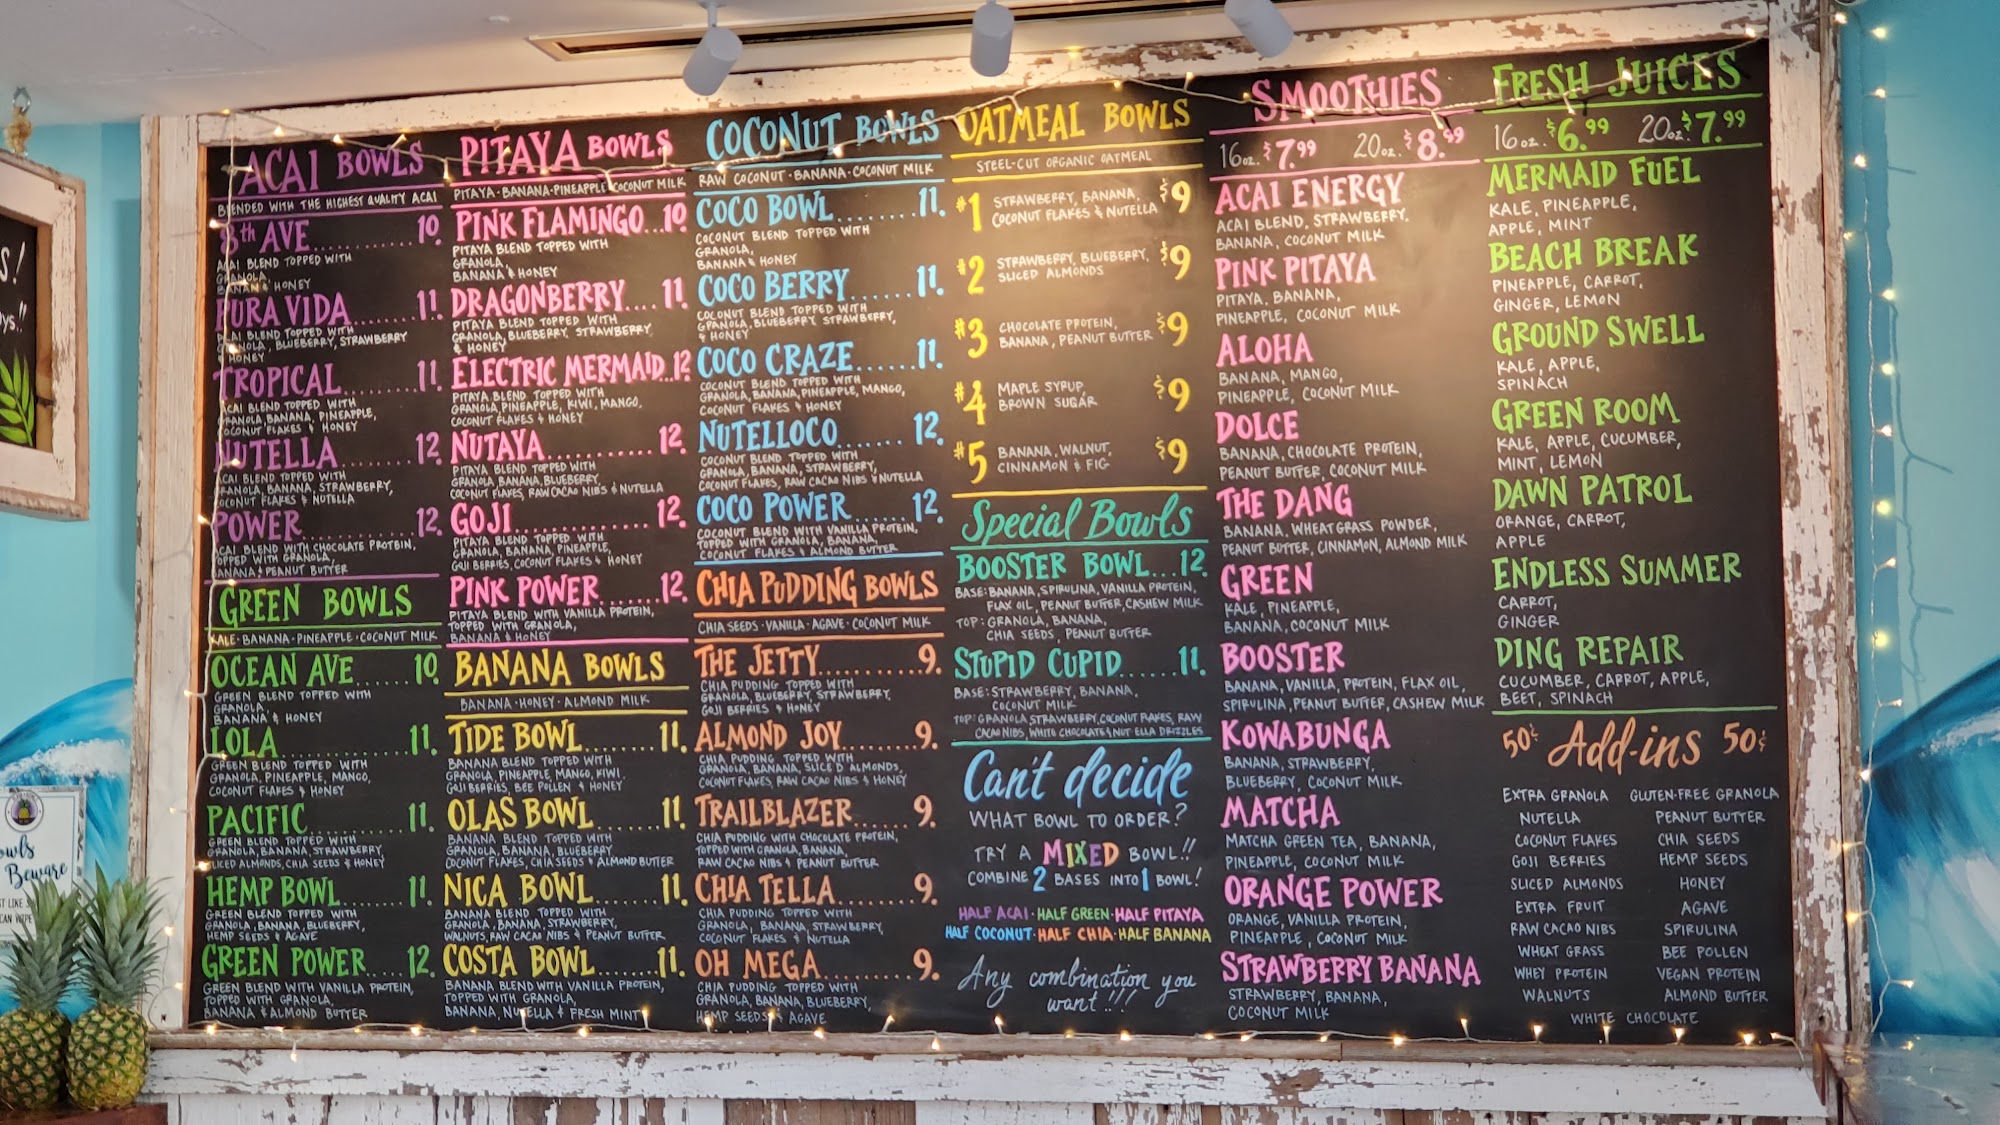 ACAI BOWLS
BLENDED WITH THE HIGHEST QUALITY ACAI
8th AVE............. 10.
ACAI BLEND TOPPED WITH
GRANOLA,
BANANA & HONEY
PURA VIDA........... 11.
ACAI BLEND TOPPED WITH
GRANOLA, BLUEBERRY, STRAWBERRY
& HONEY
TROPICAL......... 11.
ACAI BLEND TOPPED WITH
GRANOLA, BANANA, PINEAPPLE,
COCONUT FLAKES & HONEY
NUTELLA......... 12.
ACAI BLEND TOPPED WITH
GRANOLA, BANANA, STRAWBERRY,
COCONUT FLAKES & NUTELLA
POWER............. 12.
ACAI BLEND WITH CHOCOLATE PROTEIN,
TOPPED WITH GRANOLA,
BANANA & PEANUT BUTTER
GREEN BOWLS
KALE · BANANA · PINEAPPLE · COCONUT MILK
OCEAN AVE....... 10.
GREEN BLEND TOPPED WITH
GRANOLA,
BANANA & HONEY
LOLA............... 11.
GREEN BLEND TOPPED WITH
GRANOLA, PINEAPPLE, MANGO,
COCONUT FLAKES & HONEY
PACIFIC............ 11.
GREEN BLEND TOPPED WITH
GRANOLA, BANANA, STRAWBERRY,
SLICED ALMONDS, CHIA SEEDS & HONEY
HEMP BOWL........ 11.
GREEN BLEND TOPPED WITH
GRANOLA, BANANA, BLUEBERRY,
HEMP SEEDS & AGAVE
GREEN POWER..... 12.
GREEN BLEND WITH VANILLA PROTEIN,
TOPPED WITH GRANOLA,
BANANA & ALMOND BUTTER
PITAYA BOWLS
PITAYA · BANANA · PINEAPPLE · COCONUT MILK
PINK FLAMINGO... 10.
PITAYA BLEND TOPPED WITH
GRANOLA,
BANANA & HONEY
DRAGONBERRY.... 11.
PITAYA BLEND TOPPED WITH
GRANOLA, BLUEBERRY, STRAWBERRY
& HONEY
ELECTRIC MERMAID.. 12
PITAYA BLEND TOPPED WITH
GRANOLA, PINEAPPLE, KIWI, MANGO,
COCONUT FLAKES & HONEY
NUTAYA............ 12.
PITAYA BLEND TOPPED WITH
GRANOLA, BANANA, BLUEBERRY,
COCONUT FLAKES, RAW CACAO NIBS & NUTELLA
GOJI............. 12.
PITAYA BLEND TOPPED WITH
GRANOLA, BANANA, PINEAPPLE,
GOJI BERRIES, COCONUT FLAKES & HONEY
PINK POWER...... 12.
PITAYA BLEND WITH VANILLA PROTEIN,
TOPPED WITH GRANOLA,
BANANA & HONEY
BANANA BOWLS
BANANA · HONEY · ALMOND MILK
TIDE BOWL....... 11.
BANANA BLEND TOPPED WITH
GRANOLA, PINEAPPLE, MANGO, KIWI,
GOJI BERRIES, BEE POLLEN & HONEY
OLAS BOWL....... 11.
BANANA BLEND TOPPED WITH
GRANOLA, BANANA, BLUEBERRY
COCONUT FLAKES, CHIA SEEDS & ALMOND BUTTER
NICA BOWL....... 11.
BANANA BLEND TOPPED WITH
GRANOLA, BANANA, STRAWBERRY,
WALNUTS, RAW CACAO NIBS & PEANUT BUTTER
COSTA BOWL...... 11.
BANANA BLEND WITH VANILLA PROTEIN,
TOPPED WITH GRANOLA,
BANANA, NUTELLA & FRESH MINT
COCONUT BOWLS
RAW COCONUT · BANANA · COCONUT MILK
COCO BOWL........ 11.
COCONUT BLEND TOPPED WITH
GRANOLA,
BANANA & HONEY
COCO BERRY....... 11.
COCONUT BLEND TOPPED WITH
GRANOLA, BLUEBERRY, STRAWBERRY,
& HONEY
COCO CRAZE...... 11.
COCONUT BLEND TOPPED WITH
GRANOLA, BANANA, PINEAPPLE, MANGO,
COCONUT FLAKES & HONEY
NUTELLOCO....... 12.
COCONUT BLEND TOPPED WITH
GRANOLA, BANANA, STRAWBERRY,
COCONUT FLAKES, RAW CACAO NIBS & NUTELLA
COCO POWER...... 12.
COCONUT BLEND WITH VANILLA PROTEIN,
TOPPED WITH GRANOLA, BANANA,
COCONUT FLAKES & ALMOND BUTTER
CHIA PUDDING BOWLS
CHIA SEEDS · VANILLA · AGAVE · COCONUT MILK
THE JETTY......... 9.
CHIA PUDDING TOPPED WITH
GRANOLA, BLUEBERRY, STRAWBERRY,
GOJI BERRIES & HONEY
ALMOND JOY....... 9.
CHIA PUDDING TOPPED WITH
GRANOLA, BANANA, SLICED ALMONDS,
COCONUT FLAKES, RAW CACAO NIBS & HONEY
TRAILBLAZER...... 9.
CHIA PUDDING WITH CHOCOLATE PROTEIN,
TOPPED WITH GRANOLA, BANANA,
RAW CACAO NIBS & PEANUT BUTTER
CHIA TELLA........ 9.
CHIA PUDDING TOPPED WITH
GRANOLA, BANANA, STRAWBERRY,
COCONUT FLAKES & NUTELLA
OH MEGA.......... 9.
CHIA PUDDING TOPPED WITH
GRANOLA, BANANA, BLUEBERRY,
HEMP SEEDS & AGAVE
OATMEAL BOWLS
STEEL-CUT ORGANIC OATMEAL
#1 STRAWBERRY, BANANA, $9
COCONUT FLAKES & NUTELLA
#2 STRAWBERRY, BLUEBERRY, $9
SLICED ALMONDS
#3 CHOCOLATE PROTEIN, $9
BANANA, PEANUT BUTTER
#4 MAPLE SYRUP, $9
BROWN SUGAR
#5 BANANA, WALNUT, $9
CINNAMON & FIG
Special Bowls
BOOSTER BOWL...12.
BASE: BANANA, SPIRULINA, VANILLA PROTEIN,
FLAX OIL, PEANUT BUTTER, CASHEW MILK
TOP: GRANOLA, BANANA,
CHIA SEEDS, PEANUT BUTTER
STUPID CUPID...... 11.
BASE: STRAWBERRY, BANANA,
COCONUT MILK
TOP: GRANOLA, STRAWBERRY, COCONUT FLAKES, RAW
CACAO NIBS, WHITE CHOCOLATE & NUTELLA DRIZZLES
Can't decide
WHAT BOWL TO ORDER?
TRY A MIXED BOWL!!
COMBINE 2 BASES INTO 1 BOWL!
HALF ACAI · HALF GREEN · HALF PITAYA
HALF COCONUT · HALF CHIA · HALF BANANA
Any combination you
want!!!
SMOOTHIES
16oz. $7.99 20oz. $8.99
ACAI ENERGY
ACAI BLEND, STRAWBERRY,
BANANA, COCONUT MILK
PINK PITAYA
PITAYA, BANANA,
PINEAPPLE, COCONUT MILK
ALOHA
BANANA, MANGO,
PINEAPPLE, COCONUT MILK
DOLCE
BANANA, CHOCOLATE PROTEIN,
PEANUT BUTTER, COCONUT MILK
THE DANG
BANANA, WHEATGRASS POWDER,
PEANUT BUTTER, CINNAMON, ALMOND MILK
GREEN
KALE, PINEAPPLE,
BANANA, COCONUT MILK
BOOSTER
BANANA, VANILLA, PROTEIN, FLAX OIL,
SPIRULINA, PEANUT BUTTER, CASHEW MILK
KOWABUNGA
BANANA, STRAWBERRY,
BLUEBERRY, COCONUT MILK
MATCHA
MATCHA GREEN TEA, BANANA,
PINEAPPLE, COCONUT MILK
ORANGE POWER
ORANGE, VANILLA PROTEIN,
PINEAPPLE, COCONUT MILK
STRAWBERRY BANANA
STRAWBERRY, BANANA,
COCONUT MILK
FRESH JUICES
16oz. $6.99 20oz. $7.99
MERMAID FUEL
KALE, PINEAPPLE,
APPLE, MINT
BEACH BREAK
PINEAPPLE, CARROT,
GINGER, LEMON
GROUND SWELL
KALE, APPLE,
SPINACH
GREEN ROOM
KALE, APPLE, CUCUMBER,
MINT, LEMON
DAWN PATROL
ORANGE, CARROT,
APPLE
ENDLESS SUMMER
CARROT,
GINGER
DING REPAIR
CUCUMBER, CARROT, APPLE,
BEET, SPINACH
50¢ Add-ins 50¢
EXTRA GRANOLA GLUTEN-FREE GRANOLA
NUTELLA PEANUT BUTTER
COCONUT FLAKES CHIA SEEDS
GOJI BERRIES HEMP SEEDS
SLICED ALMONDS HONEY
EXTRA FRUIT AGAVE
RAW CACAO NIBS SPIRULINA
WHEAT GRASS BEE POLLEN
WHEY PROTEIN VEGAN PROTEIN
WALNUTS ALMOND BUTTER
WHITE CHOCOLATE
Beware